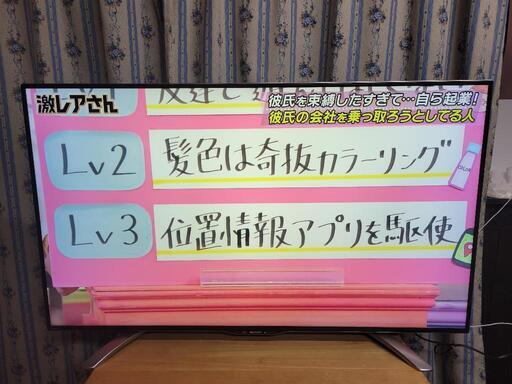 激レアさん
彼氏を束縛したすぎて…自ら起業!
彼氏の会社を乗っ取ろうとしてる人
Lv2
髪色は奇抜カラーリング
Lv3
位置情報アプリを駆使